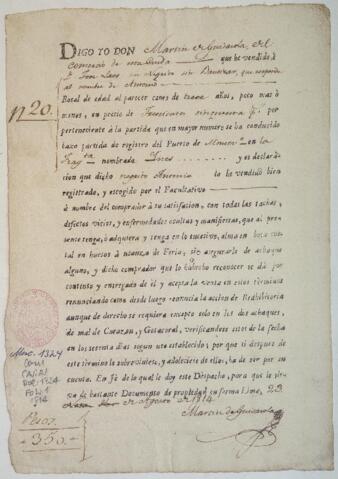 DIGO YO DON Martin de Guisasola, del
comercio de esta que he vendido á
Dn Jose un Negrito sin Bautizar, que responde
al nombre de Antonio
Bozal de edad al parecer como de trece años, poco mas ó
menos, en precio de Trescientos cinquenta ps. por
perteneciente á la partida que en mayor numero se ha conducido
baxo partida de registro del Puerto de en la
Fragta nombrada Ines y es declaracion
que dicho negrito Antonio lo ha vendido bien
registrado, y escogido por el Facultativo
á nombre del comprador á su satisfacion, con todas las tachas,
defectos vicios, y enfermedades ocultas y manifiestas, que al presente
tenga, ó adquiera y tenga en lo sucesivo, alma en boca costal
en huesos á usanza de Feria, sin asegurarle de achaque
alguno, y dicho comprador que lo ha hecho reconocer se dá por
contento y entregado de él y acepta la venta en estos terminos
renunciando como desde luego renuncia la accion de Redhibitoria
aunque de derecho se requiera excepto solo en los dos achaques,
de mal de Corazon, y Gotacoral, verificandose estos de la fecha
en los sesenta dias segun uso establecido; por que si despues de
este termino le sobrevinieren, y adoleciere de ellos, ha de ser por su
cuenta. En fé de lo qual le doy este Despacho, para que le sirva
de bastante Documento de propiedad en forma Lima, 23
de Agosto de 1814
Martin de Guisasola
N 20.
1324
1814
Pesos
350